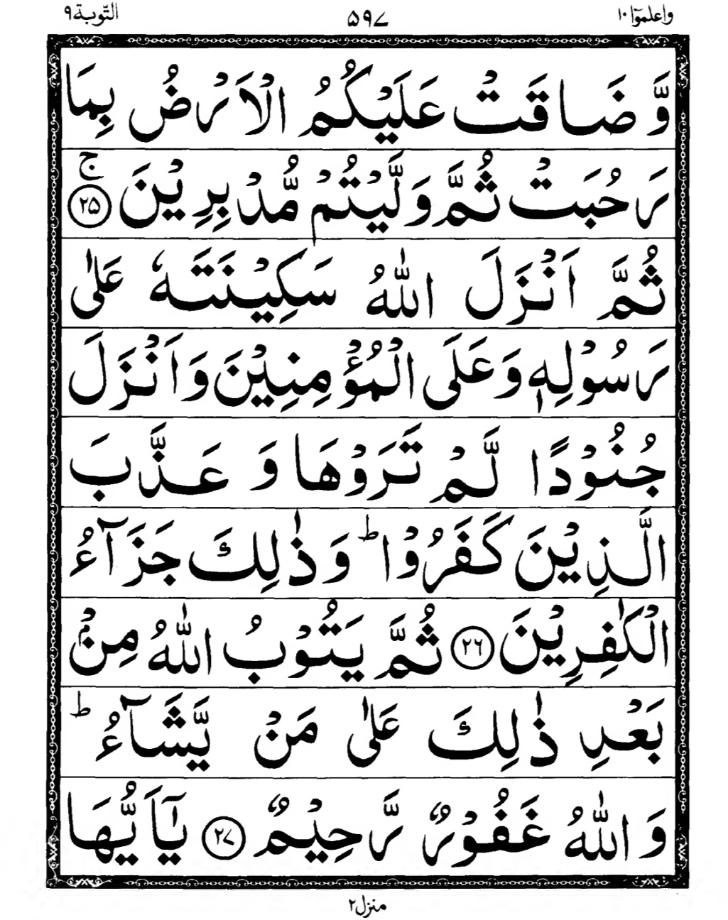 واعلموٓا ١٠ ۵۹۷ التّوبة ٩
وَّ ضَاقَتْ عَلَيْكُمُ الْاَرْضُ بِمَا
رَحُبَتْ ثُمَّ وَلَّيْتُمْ مُّدْبِرِيْنَ ۚ ﴿۲۵﴾
ثُمَّ اَنْزَلَ اللّٰهُ سَكِيْنَتَهٗ عَلٰى
رَسُوْلِهٖ وَعَلَى الْمُؤْمِنِيْنَ وَاَنْزَلَ
جُنُوْدًا لَّمْ تَرَوْهَا وَ عَذَّبَ
الَّذِيْنَ كَفَرُوْا ؕ وَذٰلِكَ جَزَآءُ
الْكٰفِرِيْنَ ﴿۲۶﴾ ثُمَّ يَتُوْبُ اللّٰهُ مِنْۢ
بَعْدِ ذٰلِكَ عَلٰى مَنْ يَّشَآءُ ؕ
وَ اللّٰهُ غَفُوْرٌ رَّحِيْمٌ ﴿۲۷﴾ يٰٓاَيُّهَا
منزل ٢